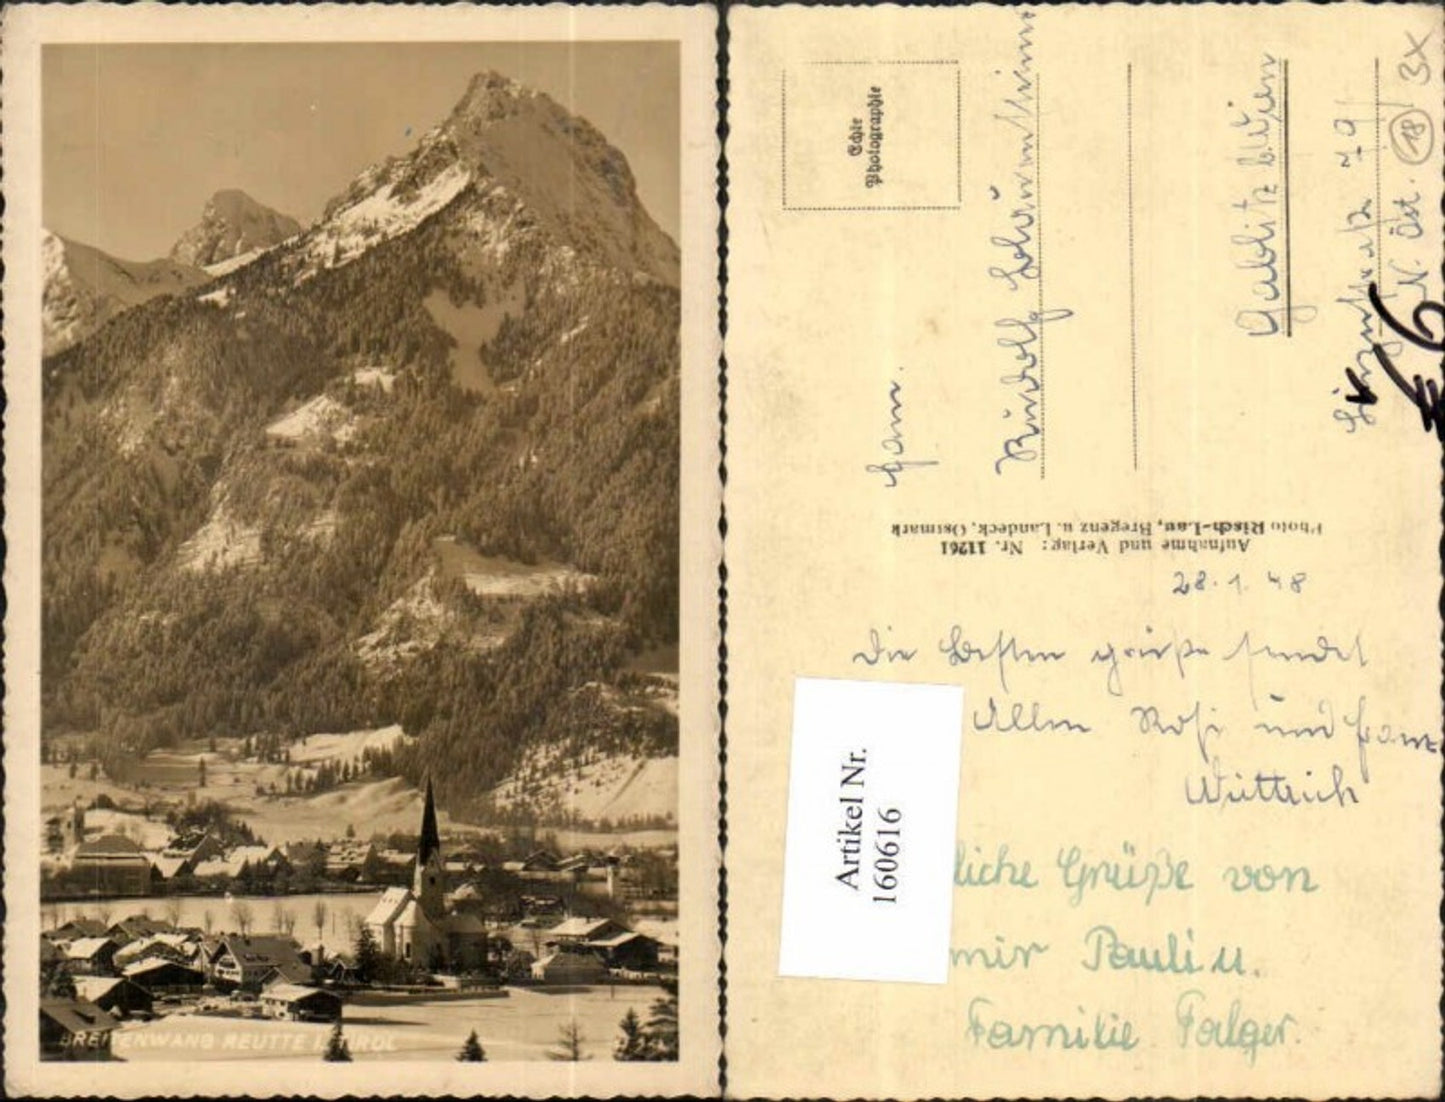 BREITENWANG REUTTE I. TIROL
Echte
Photographie
Fam.
Rudolf
Gablitz b. Wien
79
N. Öst.
18
3x
€ 6
Aufnahme und Verlag: Nr. 11261
Photo Risch-Lau, Bregenz u. Landeck, Ostmark
28. 1. 48
Die Besten grüße sendet
Allen Rosi und Franz
Wüttrich
Artikel Nr.
160616
liche Grüße von
mir Pauli u.
Familie Falger.